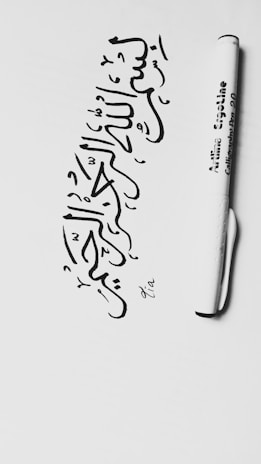 بسم الله الرحمن الرحيم
Artline Ergoline
Calligraphy Pen 2.0